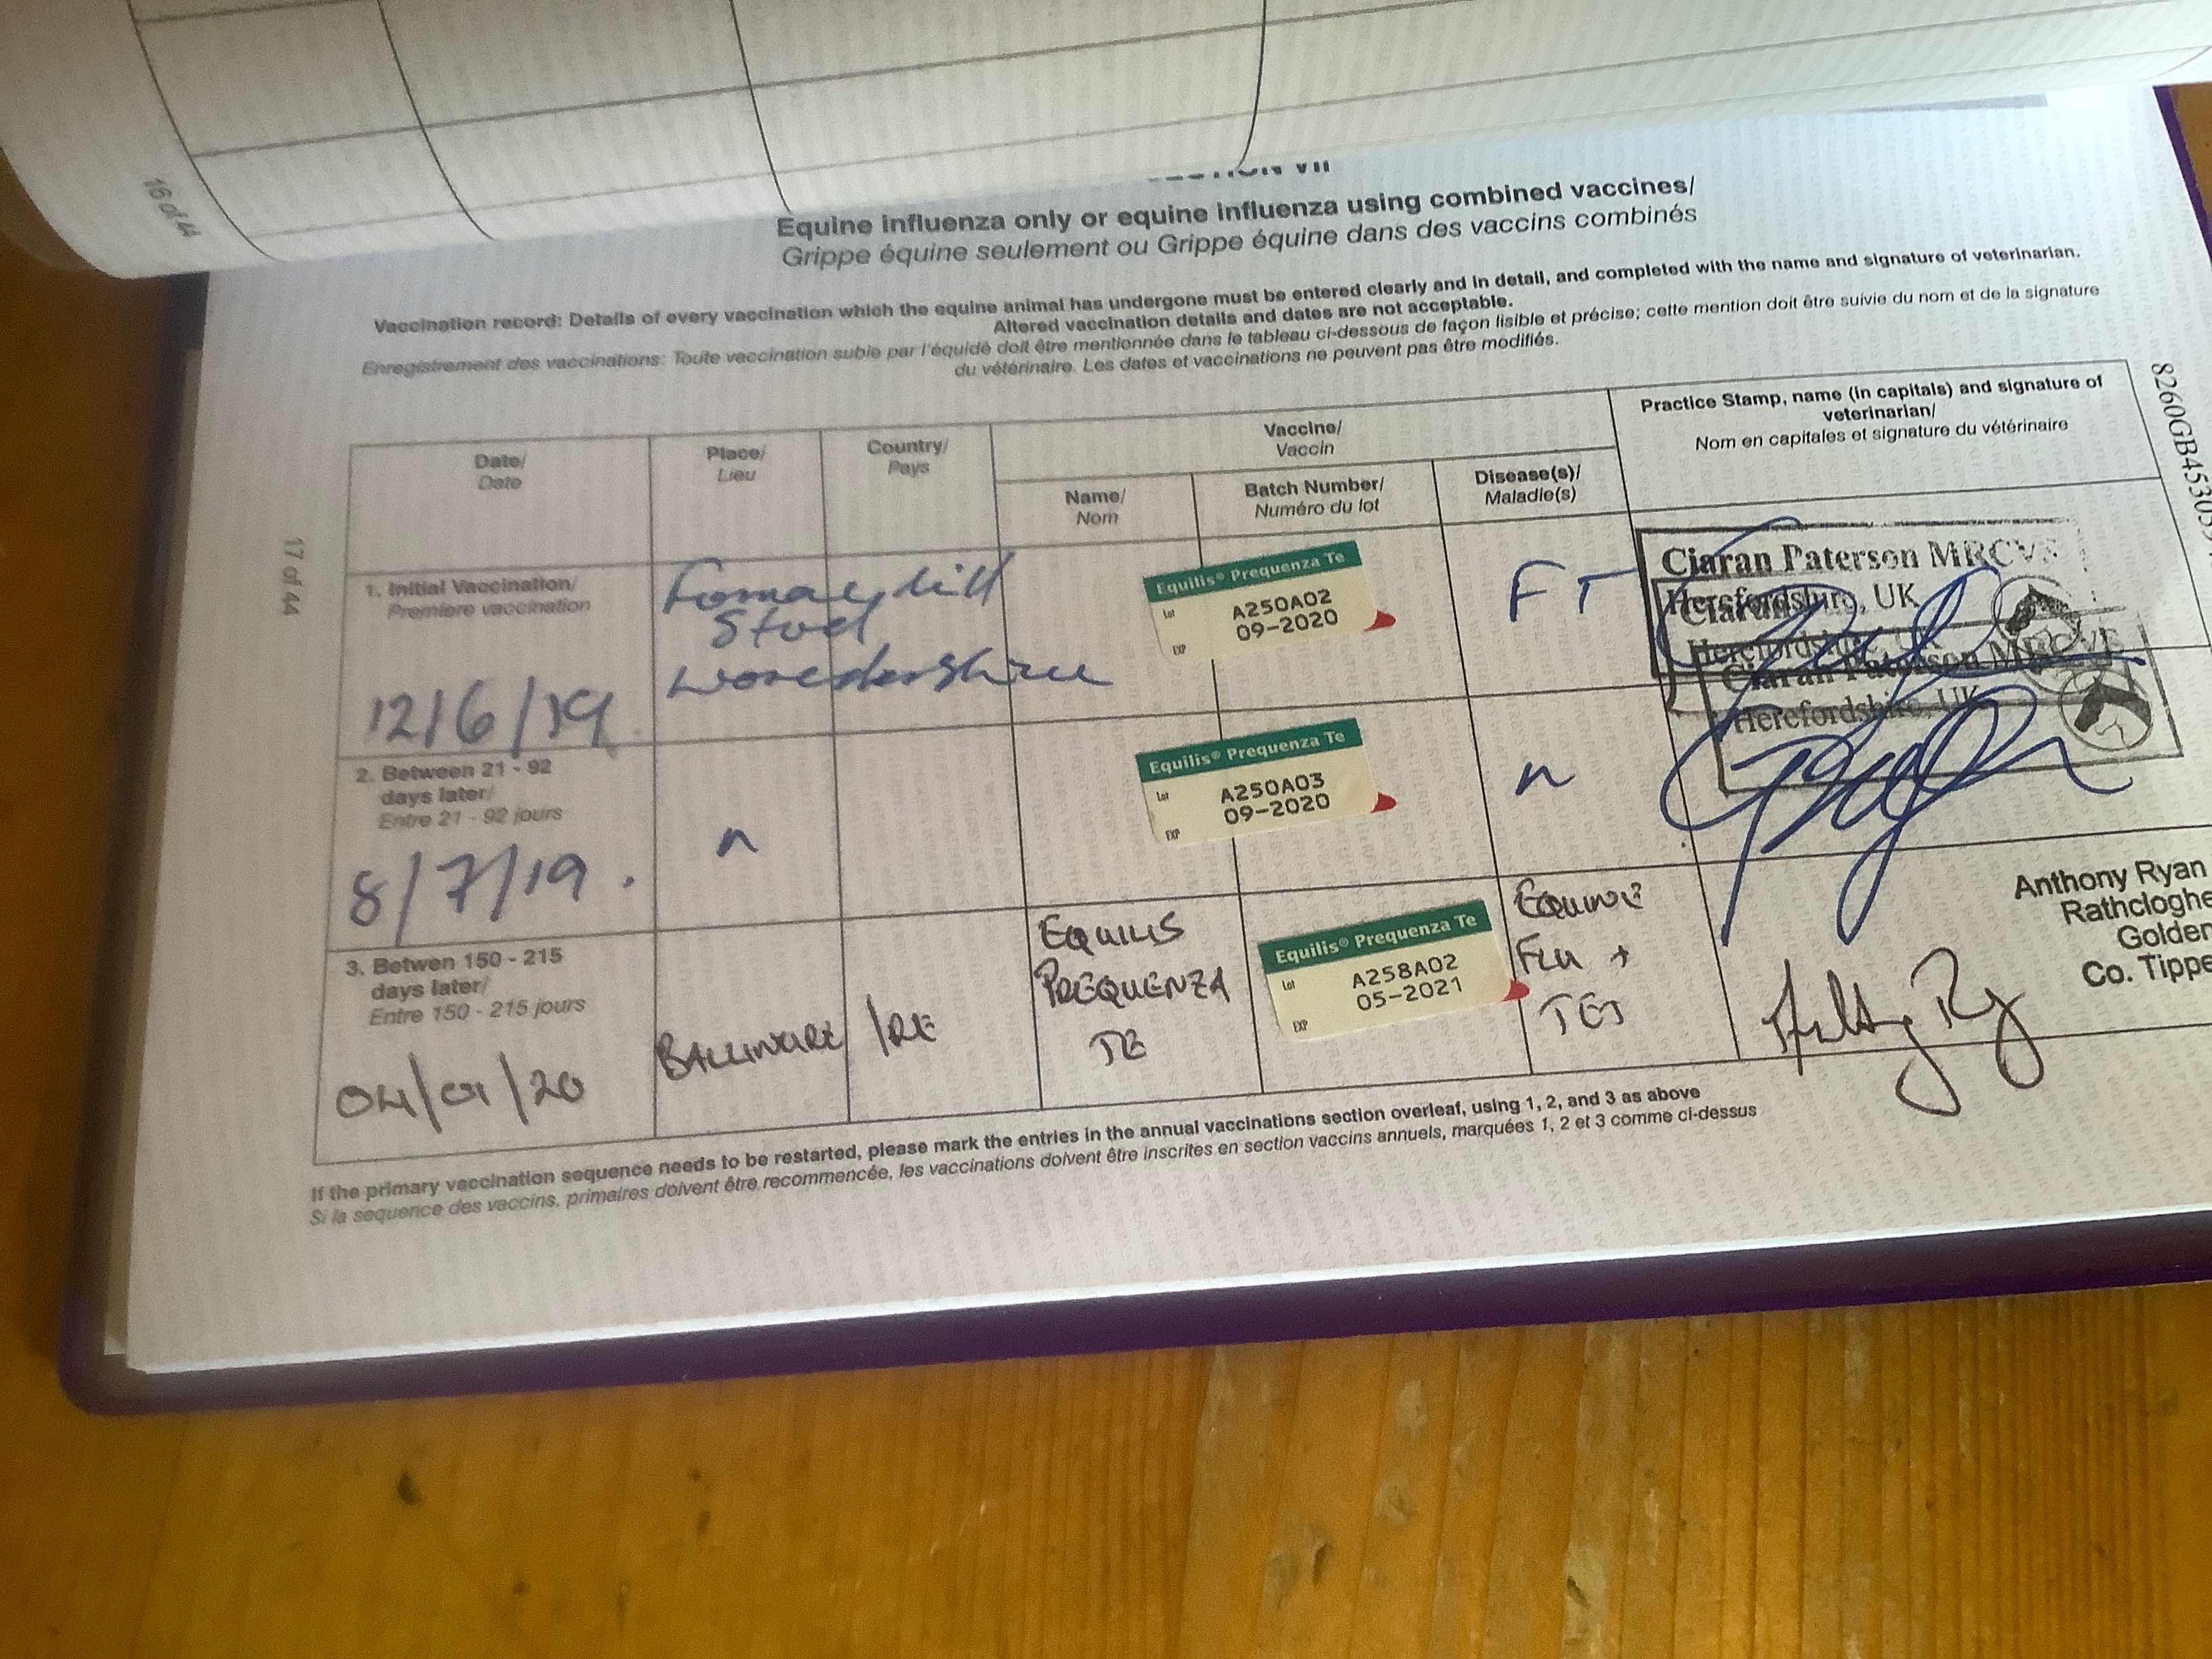 16 of 44
VII
Equine influenza only or equine influenza using combined vaccines/
Grippe équine seulement ou Grippe équine dans des vaccins combinés
Vaccination record: Details of every vaccination which the equine animal has undergone must be entered clearly and in detail, and completed with the name and signature of veterinarian.
Altered vaccination details and dates are not acceptable.
Enregistrement des vaccinations: Toute vaccination subie par l'équidé doit être mentionnée dans le tableau ci-dessous de façon lisible et précise; cette mention doit être suivie du nom et de la signature
du vétérinaire. Les dates et vaccinations ne peuvent pas être modifiés.
17 of 44
8260GB4530
Date/
Date
Place/
Lieu
Country/
Pays
Vaccine/
Vaccin
Name/
Nom
Batch Number/
Numéro du lot
Disease(s)/
Maladie(s)
Practice Stamp, name (in capitals) and signature of
veterinarian/
Nom en capitales et signature du vétérinaire
1. Initial Vaccination/
Premiere vaccination
12/6/19
Stud
Equilis® Prequenza Te
Lot A250A02
EXP 09-2020
FT
Ciaran Paterson MRCVS
Herefordshire, UK
Ciaran
Herefordshire, UK
Ciaran Paterson MRCVS
Herefordshire, UK
2. Between 21 - 92
days later/
Entre 21 - 92 jours
8/7/19.
"
Equilis® Prequenza Te
Lot A250A03
EXP 09-2020
"
3. Betwen 150 - 215
days later/
Entre 150 - 215 jours
04/01/20
IRE
EQUILIS
PREQUENZA
TE
Equilis® Prequenza Te
Lot A258A02
EXP 05-2021
EQUINE
FLU +
TET
Anthony Ryan
Rathcloghe
Golden
Co. Tippe
If the primary vaccination sequence needs to be restarted, please mark the entries in the annual vaccinations section overleaf, using 1, 2, and 3 as above
Si la sequence des vaccins, primaires doivent être recommencée, les vaccinations doivent être inscrites en section vaccins annuels, marquées 1, 2 et 3 comme ci-dessus